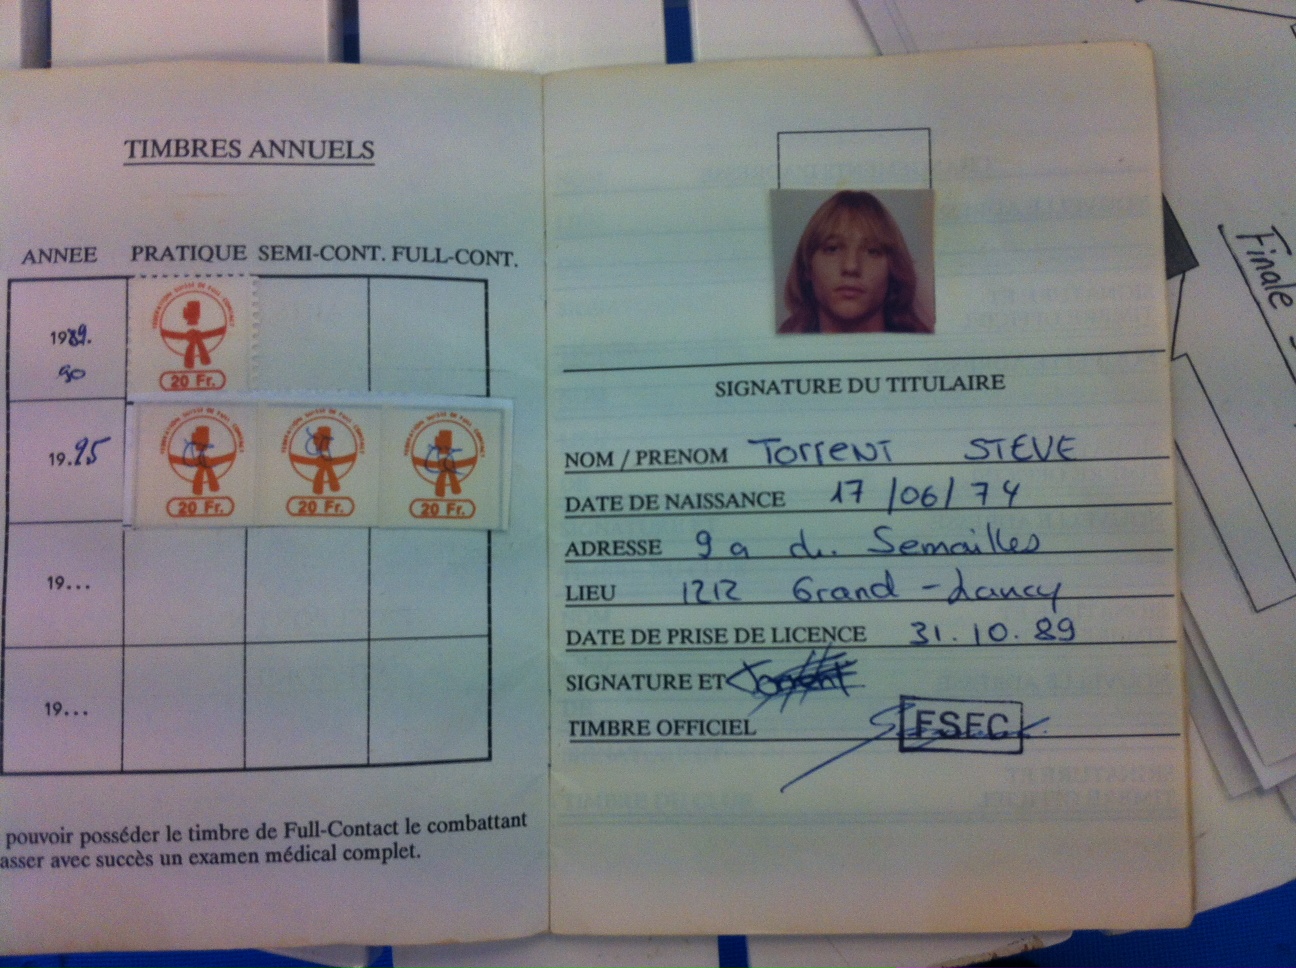 TIMBRES ANNUELS
ANNEE PRATIQUE SEMI-CONT. FULL-CONT.
1989.
90
20 Fr.
19.95
20 Fr. 20 Fr. 20 Fr.
19...
19...
pouvoir posséder le timbre de Full-Contact le combattant
asser avec succès un examen médical complet.
SIGNATURE DU TITULAIRE
NOM / PRENOM Torrent STEVE
DATE DE NAISSANCE 17/06/74
ADRESSE 9 a ch. Semailles
LIEU 1212 Grand-Lancy
DATE DE PRISE DE LICENCE 31.10.89
SIGNATURE ET Torrent
TIMBRE OFFICIEL FSFC
Finale